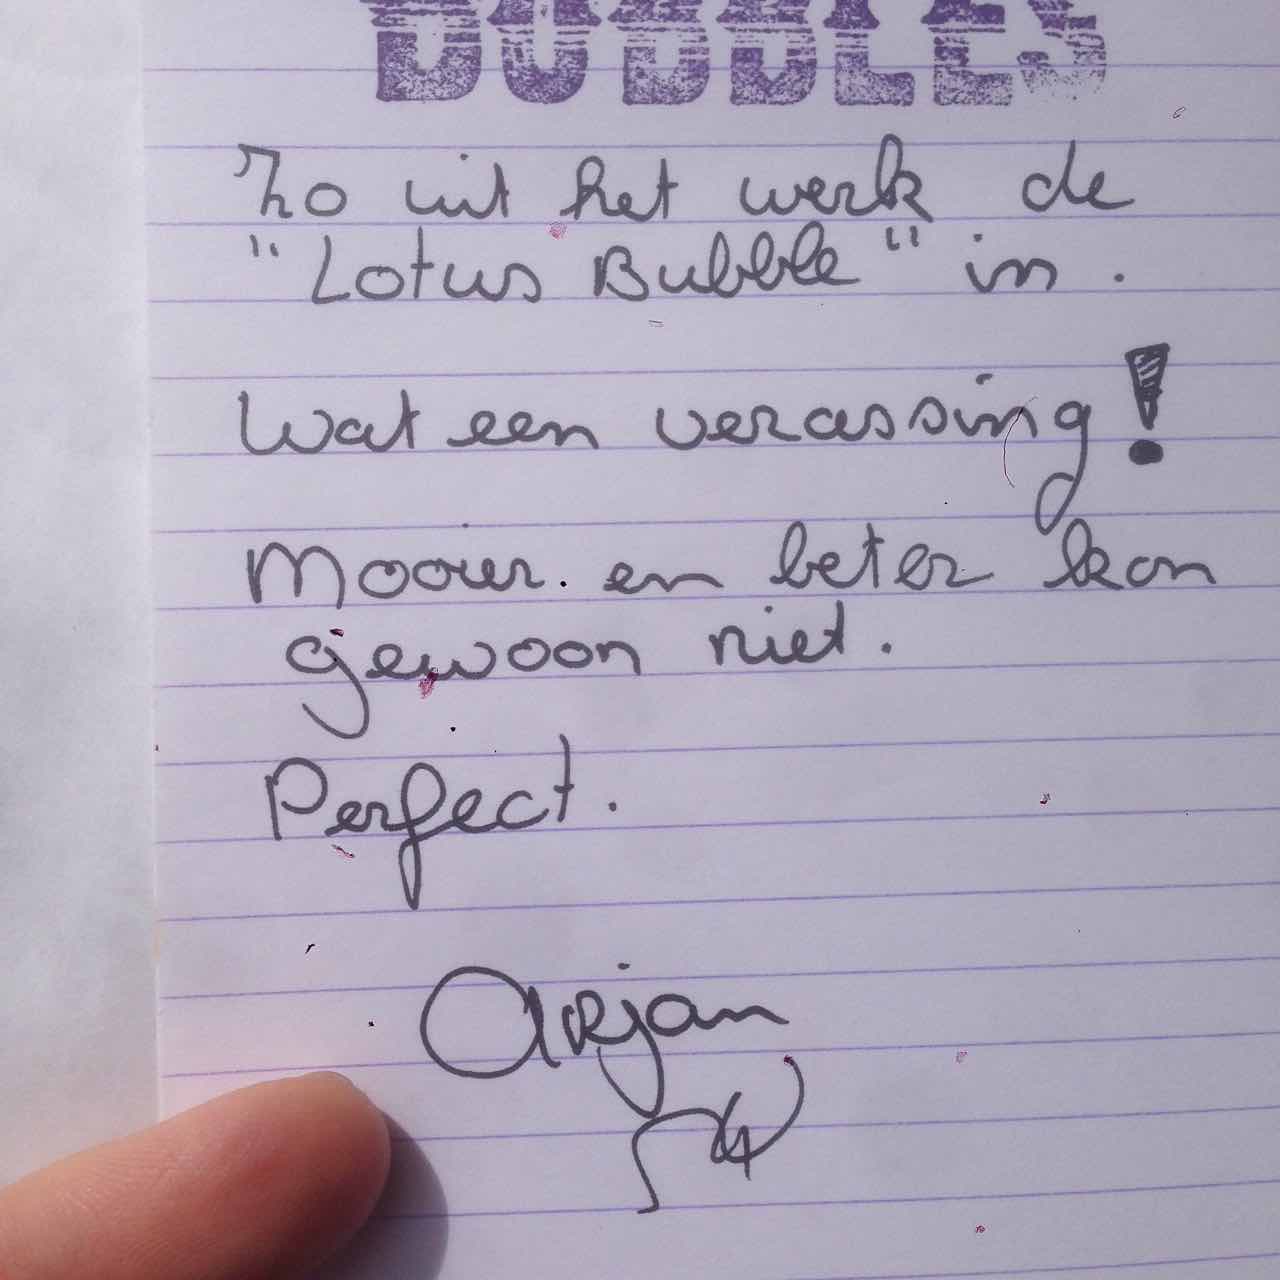 BUBBLES
Zo uit het werk de
"Lotus Bubble" in.
Wat een verassing!
Mooier. en beter kon
gewoon niet.
Perfect.
Arjan